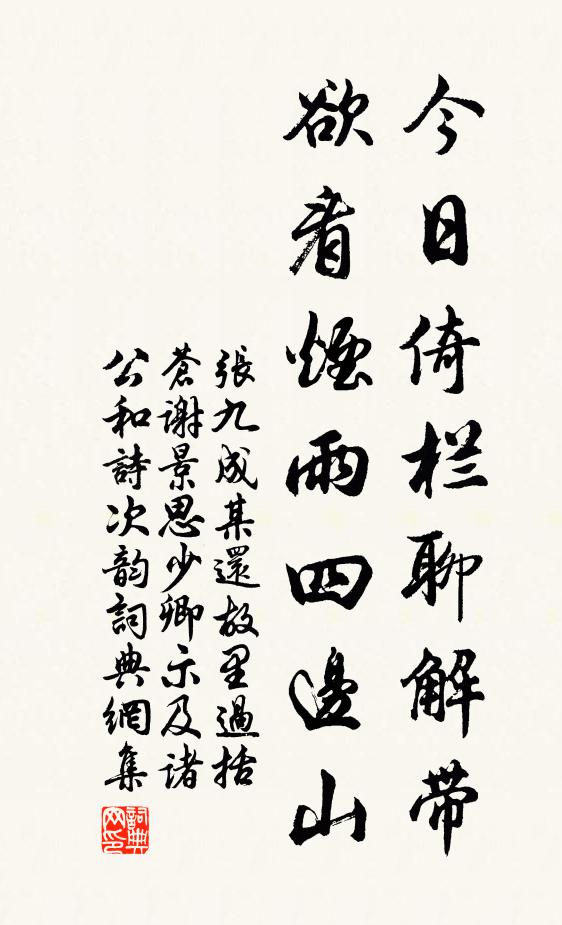 今日倚栏聊解带
欲看煙雨四邊山
張九成某還故里過括
蒼謝景思少卿示及諸
公和詩次韵詞典網集
詞典網印